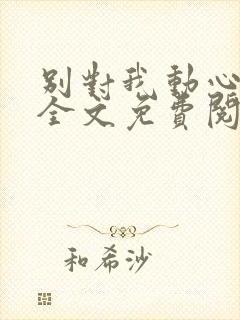 別對我動心
全文免費閱
和希沙